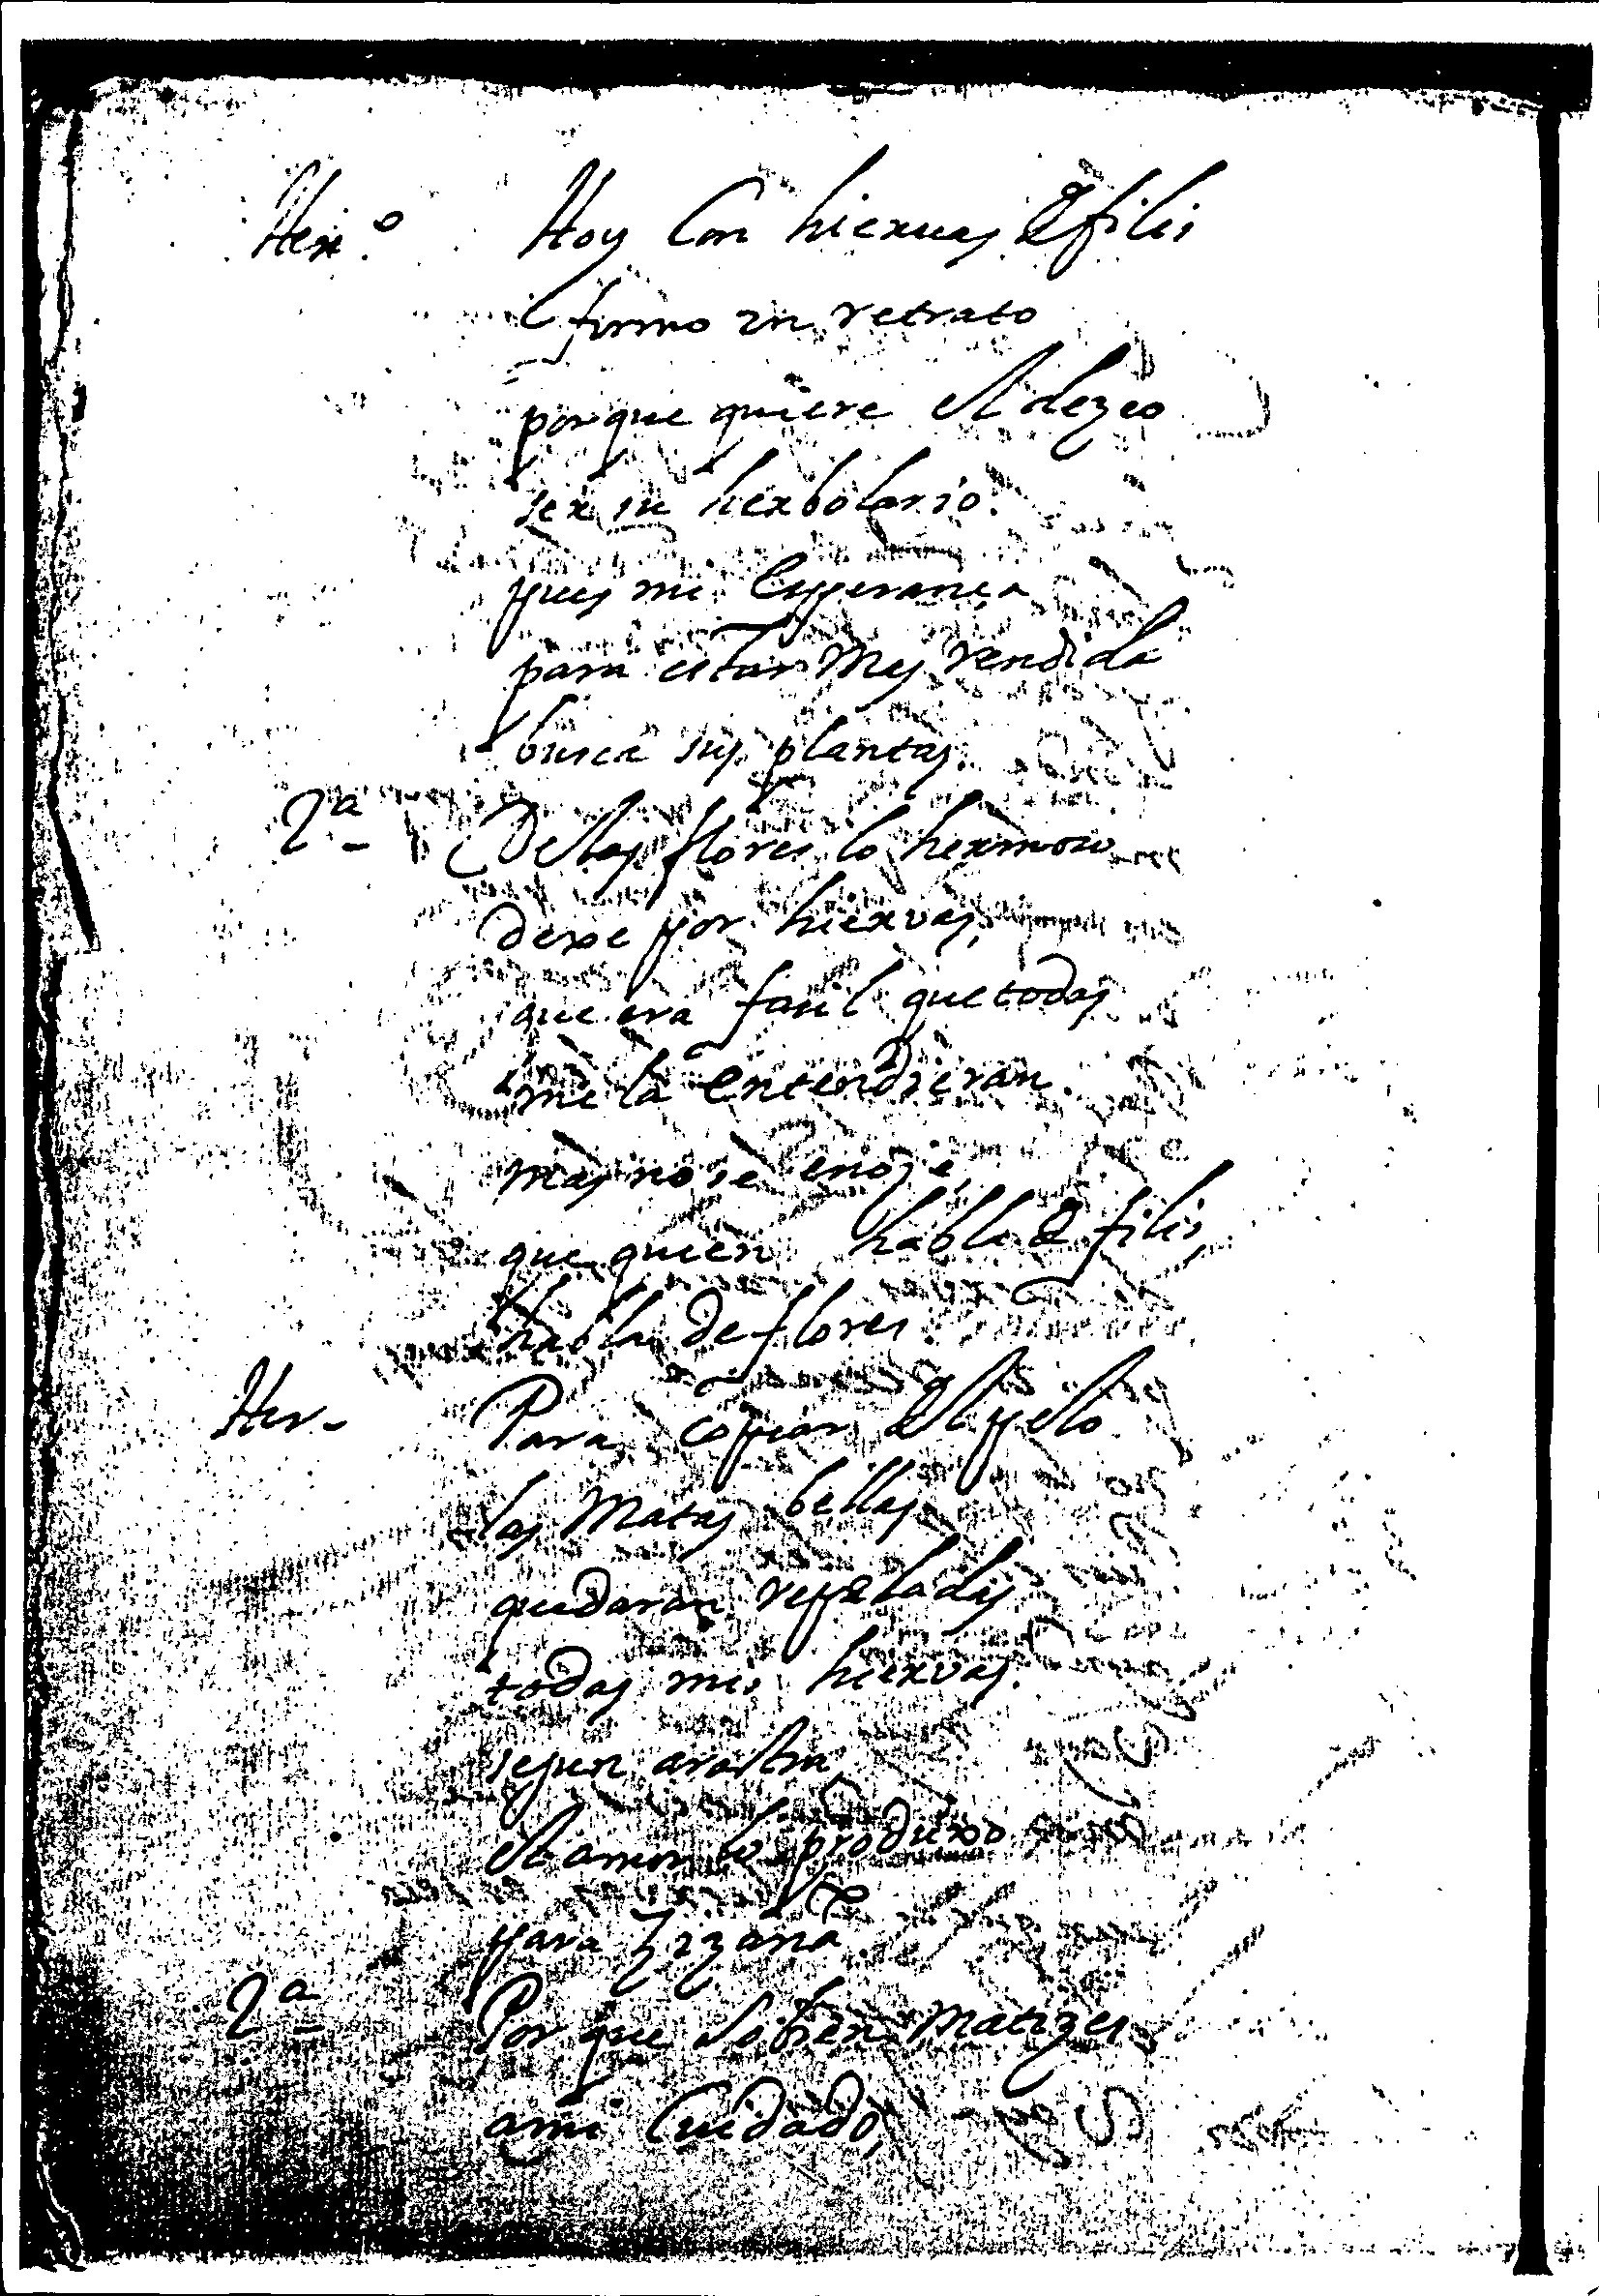 Herº. Hoy Con hiervas de filis
firmo un retrato
porque quiere el dezeo
ser su herbolario.
pues mi Esperança
para estar mas rendida
busca sus plantas.
2ª - De las flores lo hermoso
dexe por hiervas,
que era facil que todas
me la entendieran.
mas no se enoje,
que quien habla de filis,
habla de flores.
Her - Para copiar el pelo
las Matas bellas
quedaran repeladas
todas mis hiervas.
segun arastra
el amor lo produxo
para Zizaña.
2ª - Por que den Matizes
a mi Cuidado,